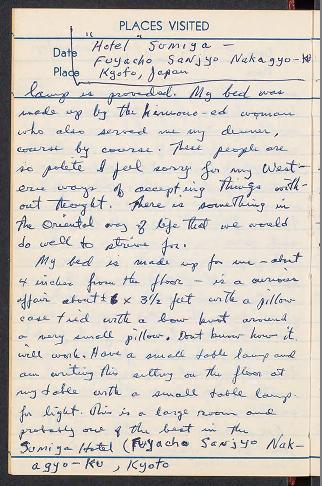 PLACES VISITED
Date
Place
"Hotel" Sumiya -
Fuyacho Sanjyo Nakagyo-Ku
Kyoto, Japan
lamp is provided. My bed was
made up by the kimono-ed woman
who also served me my dinner,
course by course. These people are
so polite I feel sorry for my West-
ern ways of accepting things with-
out thought. There is something in
the Oriental way of life that we would
do well to strive for.
My bed is made up for me - about
4 inches from the floor - is a curious
affair about 6 x 3½ feet with a pillow
case tied with a bow knot around
a very small pillow. Dont know how it
will work. Have a small table lamp and
am writing this sitting on the floor at
my table with a small table lamp
for light. This is a large room and
probably one of the best in the
Sumiya Hotel (Fuyacho Sanjyo Nak-
agyo-Ku, Kyoto